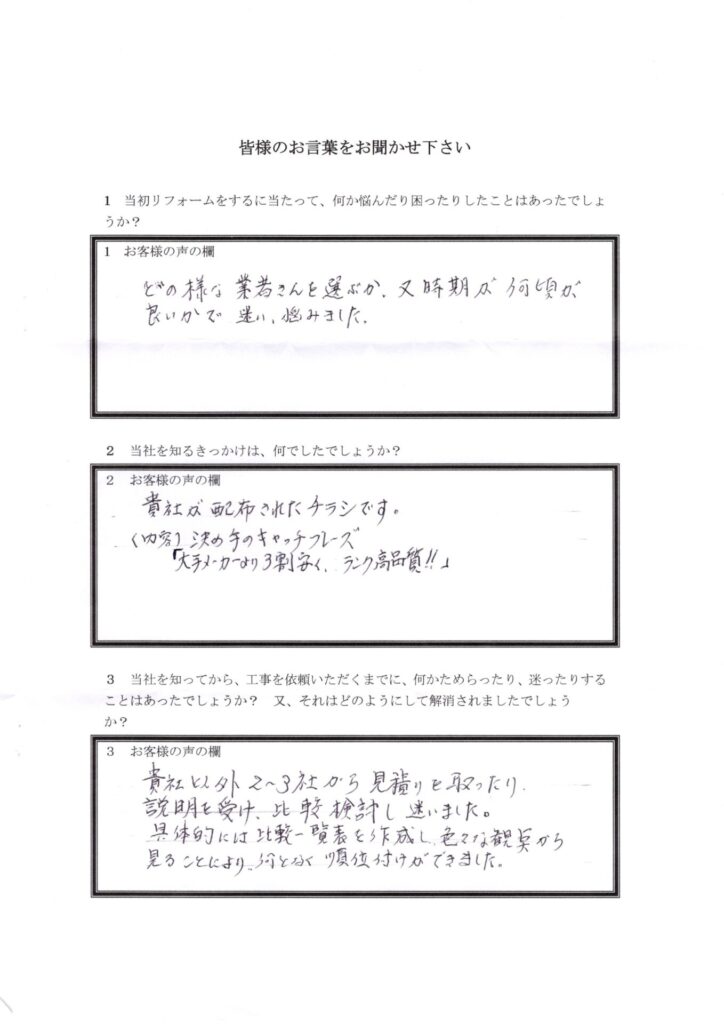 皆様のお言葉をお聞かせ下さい
1 当初リフォームをするに当たって、何か悩んだり困ったりしたことはあったでしょ
うか?
1 お客様の声の欄
どの様な業者さんを選ぶか、又時期が何頃が
良いかで迷い、悩みました。
2 当社を知るきっかけは、何でしたでしょうか?
2 お客様の声の欄
貴社が配布されたチラシです。
(内容)決め手のキャッチフレーズ
「大手メーカーより3割安く、ランク高品質!!」
3 当社を知ってから、工事を依頼いただくまでに、何かためらったり、迷ったりする
ことはあったでしょうか? 又、それはどのようにして解消されましたでしょう
か?
3 お客様の声の欄
貴社以外2〜3社から見積りを取ったり、
説明を受け、比較検討し迷いました。
具体的には比較一覧表を作成し、色々な観点から
見ることにより、何となく順位付けができました。